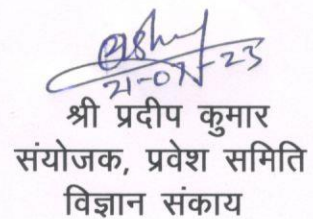 21-07-23
श्री प्रदीप कुमार
संयोजक, प्रवेश समिति
विज्ञान संकाय